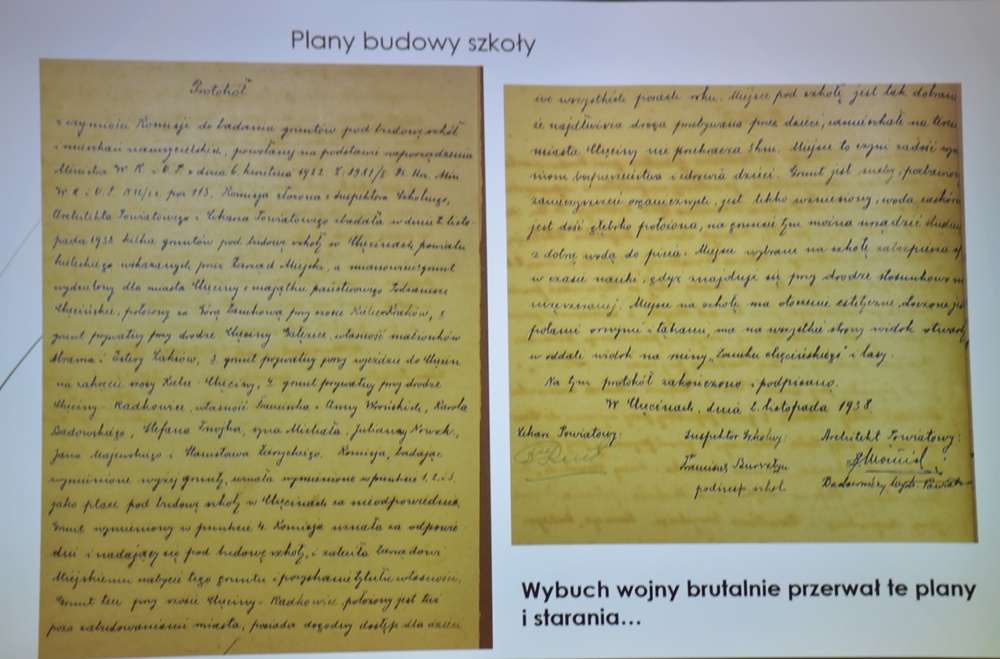 Plany budowy szkoły
Protokół
z czynności Komisji do badania gruntów pod budowę szkół
i mieszkań nauczycielskich, powołany na podstawie rozporządzenia
Ministra W. R. i O. P. z dnia 6. kwietnia 1922 Dz. Urz. Min.
W. R. i O. P. poz 113. Komisja złożona z Inspektora Szkolnego,
Architekta Powiatowego i Lekarza Powiatowego zbadała w dniu 2. listo
pada 1938 kilka gruntów pod budowę szkoły w Chęcinach powiatu
kieleckiego wskazanych przez Zarząd Miejski, a mianowicie: grunt
wydzielony dla miasta Chęciny z majątku państwowego Podzamcze
Chęcińskie, położony za Górą Zamkową przy szosie Kielce-Kraków, 2.
grunt prywatny przy drodze Chęciny Gałęzice, własność małżonków
i Estery 3. grunt prywatny przy wjeździe do Chęcin
na zakręcie szosy Kielce-Chęciny, 4. grunt prywatny przy drodze
Chęciny-Radkowice, własność Franciszka i Anny Wrońskich, Karola
Sadowskiego, Stefana syna Michała, Julianny Nowak,
Jana Majewskiego i Stanisława Komisja, badając
wymienione wyżej grunty, uznała wymienione w punkcie 1, 2 i 3.
jako place pod budowę szkoły w Chęcinach za nieodpowiednie.
Grunt wymieniony w punkcie 4. Komisja uznała za odpowie
dni i nadający się pod budowę szkoły, i zaleciła Zarządowi
Miejskiemu nabycie tego gruntu i pozyskanie tytułu własności.
Grunt ten przy szosie Chęciny-Radkowice położony jest tuż
poza zabudowaniami miasta, posiada dogodny dostęp dla dzieci
we wszystkich porach roku. Miejsce pod szkołę jest tak dobrane
że najdłuższa droga przebywana przez dzieci, zamieszkałe na terenie
miasta Chęciny nie przekracza 3 km. Miejsce to czyni zadość wym
niom bezpieczeństwa i zdrowia dzieci. Grunt jest suchy, pozbawiony
zanieczyszczeń organicznych, jest lekko wzniesiony, woda zaskórna
jest dość głęboko położona, na gruncie tym można urządzić studnię
z dobrą wodą do picia. Miejsce wybrane na szkołę zabezpiecza
w czasie nauki, gdyż znajduje się przy drodze stosunkowo
Miejsce na szkołę ma otoczenie estetyczne, otoczone jest
polami ornymi i łąkami, ma na wszystkie strony widok otwarty
w oddali widok na ruiny „Zamku chęcińskiego" i lasy.
Na tym protokół zakończono i podpisano.
W Chęcinach, dnia 2. listopada 1938
Lekarz Powiatowy: Inspektor Szkolny: Architekt Powiatowy:
Franciszek
podinsp. szkol.
Wybuch wojny brutalnie przerwał te plany
i starania...